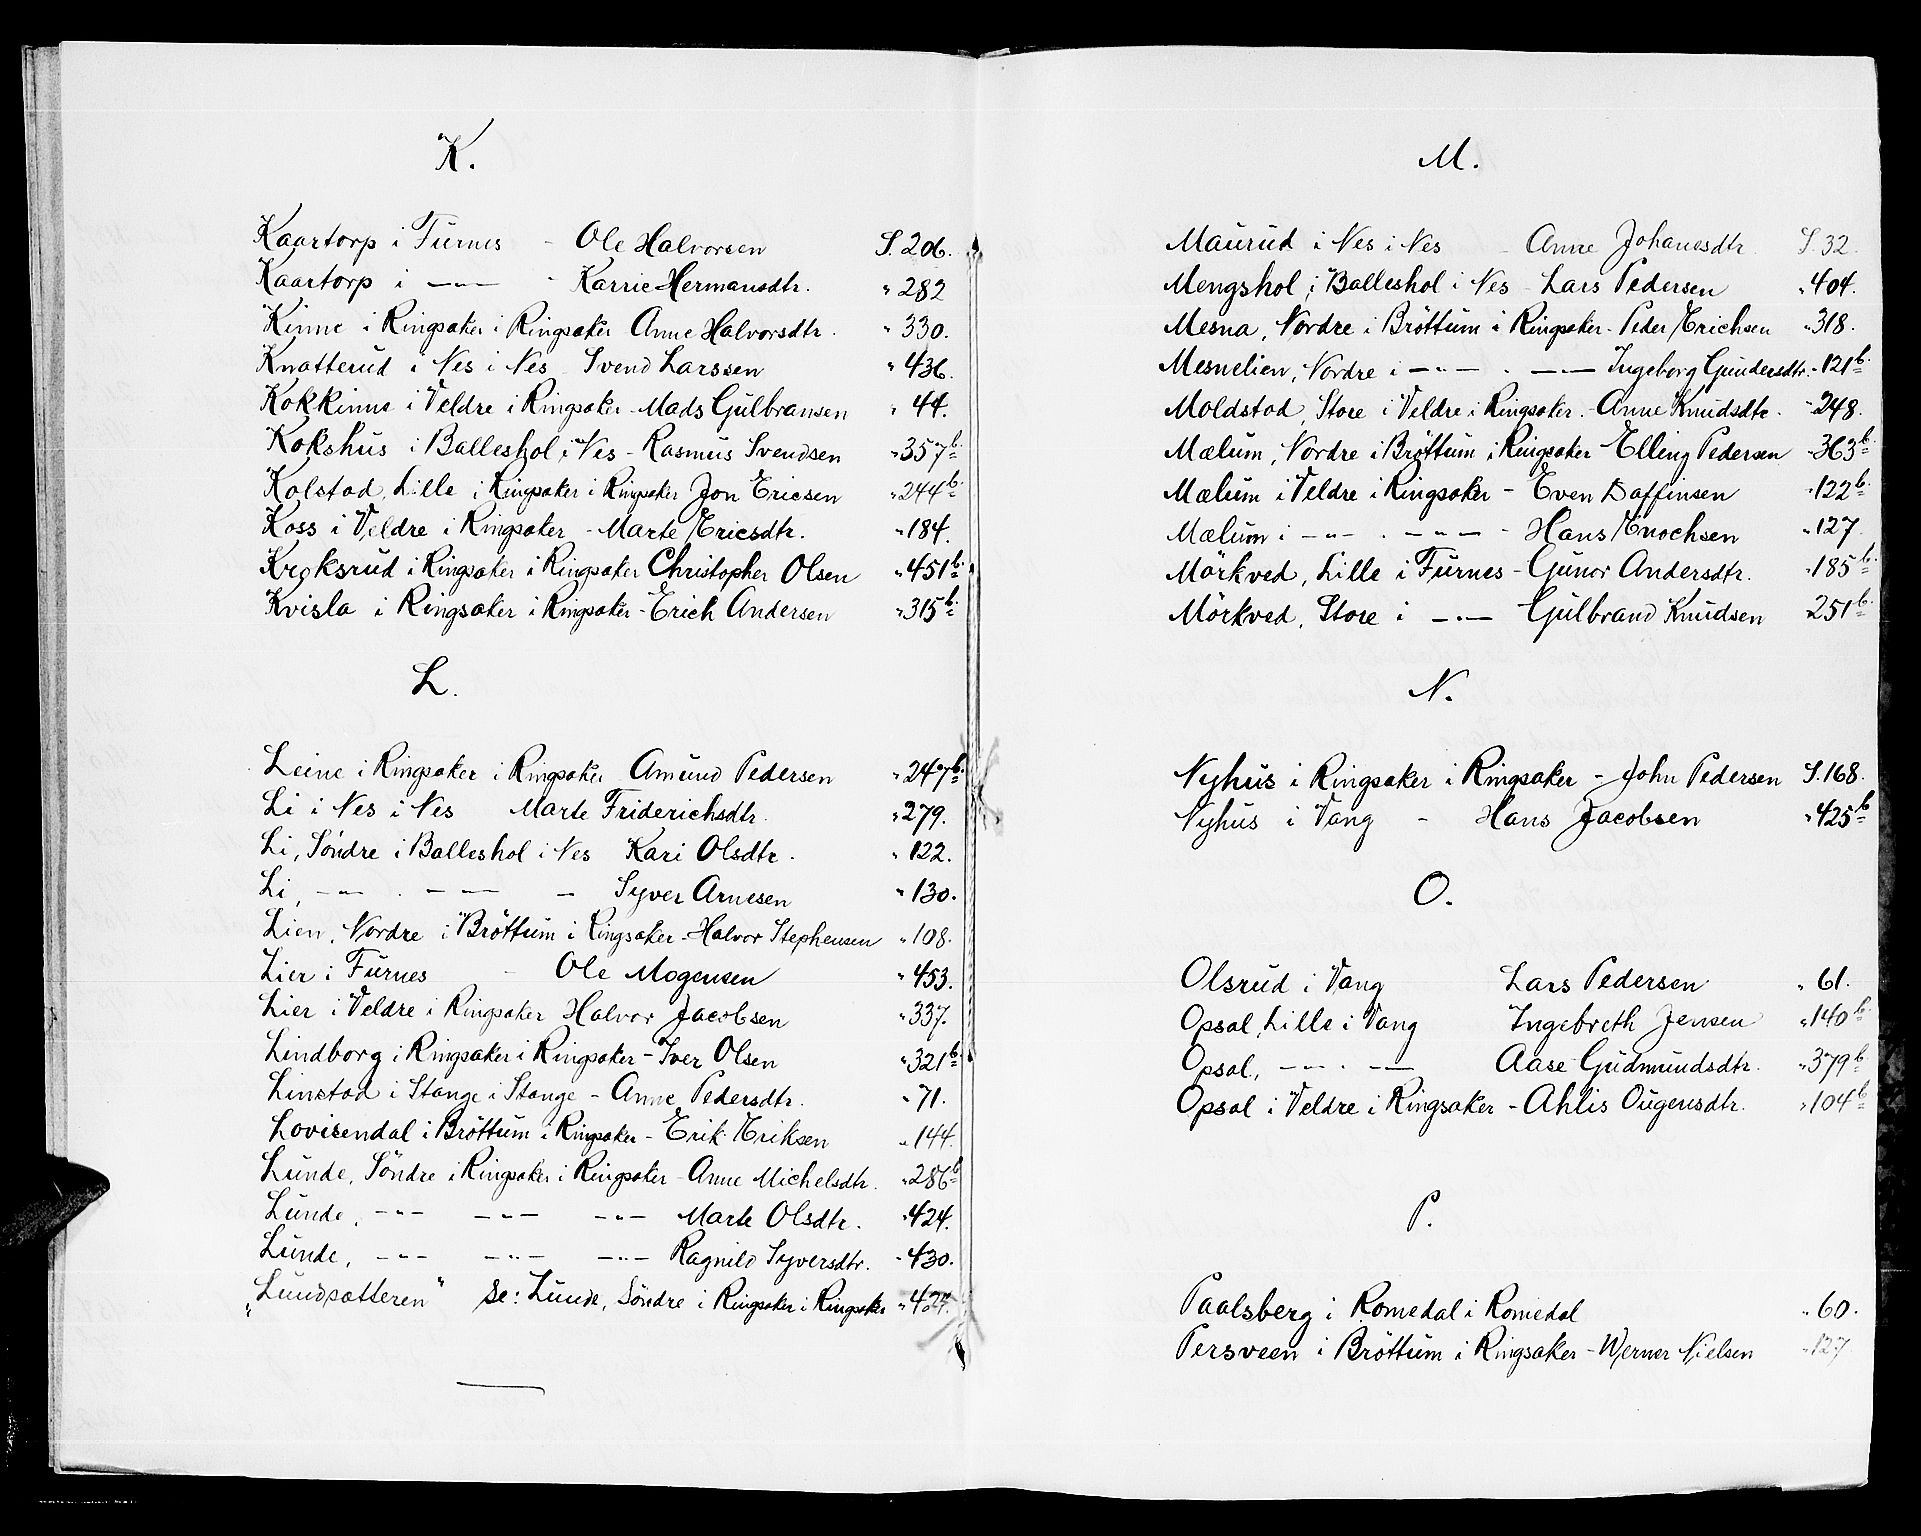 K.
Kaartorp i Furnes - Ole Halvorsen S. 206.
Kaartorp i —"— - Karrie Hermansdtr. " 282
Kinne i Ringsaker i Ringsaker Anne Halvorsdtr. " 330.
Knatterud i Nes i Nes Svend Larssen " 436.
Kokkinne i Veldre i Ringsaker - Mads Gulbransen " 44.
Kokshus i Balleshol i Nes - Rasmus Svendsen " 357b.
Kolstad, Lille i Ringsaker i Ringsaker Jon Ericsen " 244b.
Koss i Veldre i Ringsaker - Marte Ericsdtr. " 184.
Kroksrud i Ringsaker i Ringsaker Christopher Olsen " 451b.
Kvisla i Ringsaker i Ringsaker - Erich Andersen " 315b.
L.
Leine i Ringsaker i Ringsaker Amund Pedersen " 247b.
Li i Nes i Nes Marte Friderichsdtr. " 279.
Li, Söndre i Balleshol i Nes Kari Olsdtr. " 122.
Li, —"— . —"— — Syver Arnesen " 130.
Lien, Nordre i Bröttum i Ringsaker - Halvor Stephensen " 108.
Lier i Furnes - Ole Mogensen " 453.
Lier i Veldre i Ringsaker Halvor Jacobsen " 337.
Lindborg i Ringsaker i Ringsaker - Iver Olsen " 321b.
Linstad i Stange i Stange - Anne Pedersdtr. " 71.
Lovisendal i Bröttum i Ringsaker - Erik Eriksen " 144.
Lunde, Söndre i Ringsaker i Ringsaker - Anne Michelsdtr. " 286b
Lunde, —"— —"— —"— Marte Olsdtr. " 424.
Lunde, —"— —"— —"— Ragnild Syversdtr. " 430.
"Lundsætteren" se: Lunde, Söndre i Ringsaker i Ringsaker " 424.
M.
Maurud i Nes i Nes - Anne Johanesdtr. S. 32.
Mengshol i Balleshol i Nes - Lars Pedersen " 404.
Mesna, Nordre i Bröttum i Ringsaker - Peder Erichsen " 318.
Mesnelien, Nordre i —"— . —"— Ingeborg Gundersdtr. " 121b.
Moldstad, Store i Veldre i Ringsaker - Anne Knudsdtr. " 248.
Mælum, Nordre i Bröttum i Ringsaker - Elling Pedersen " 363b.
Mælum i Veldre i Ringsaker - Even Daffinsen " 122b.
Mælum i —"— . —"— - Hans Enochsen " 127.
Mörkved, Lille i Furnes - Gunor Andersdtr. " 185b.
Mörkved, Store i —"— Gulbrand Knudsen 251b.
N.
Nyhus i Ringsaker i Ringsaker - John Pedersen S. 168.
Nyhus i Vang - Hans Jacobsen " 425b
O.
Olsrud i Vang Lars Pedersen " 61.
Opsal, Lille i Vang Ingebreth Jensen " 140b.
Opsal, —"— . — Aase Gudmundsdtr. " 379b
Opsal i Veldre i Ringsaker - Ahlis Ougensdtr. " 104b
P.
Paalsberg i Romedal i Romedal " 60.
Persveen i Bröttum i Ringsaker - Werner Nielsen " 127.